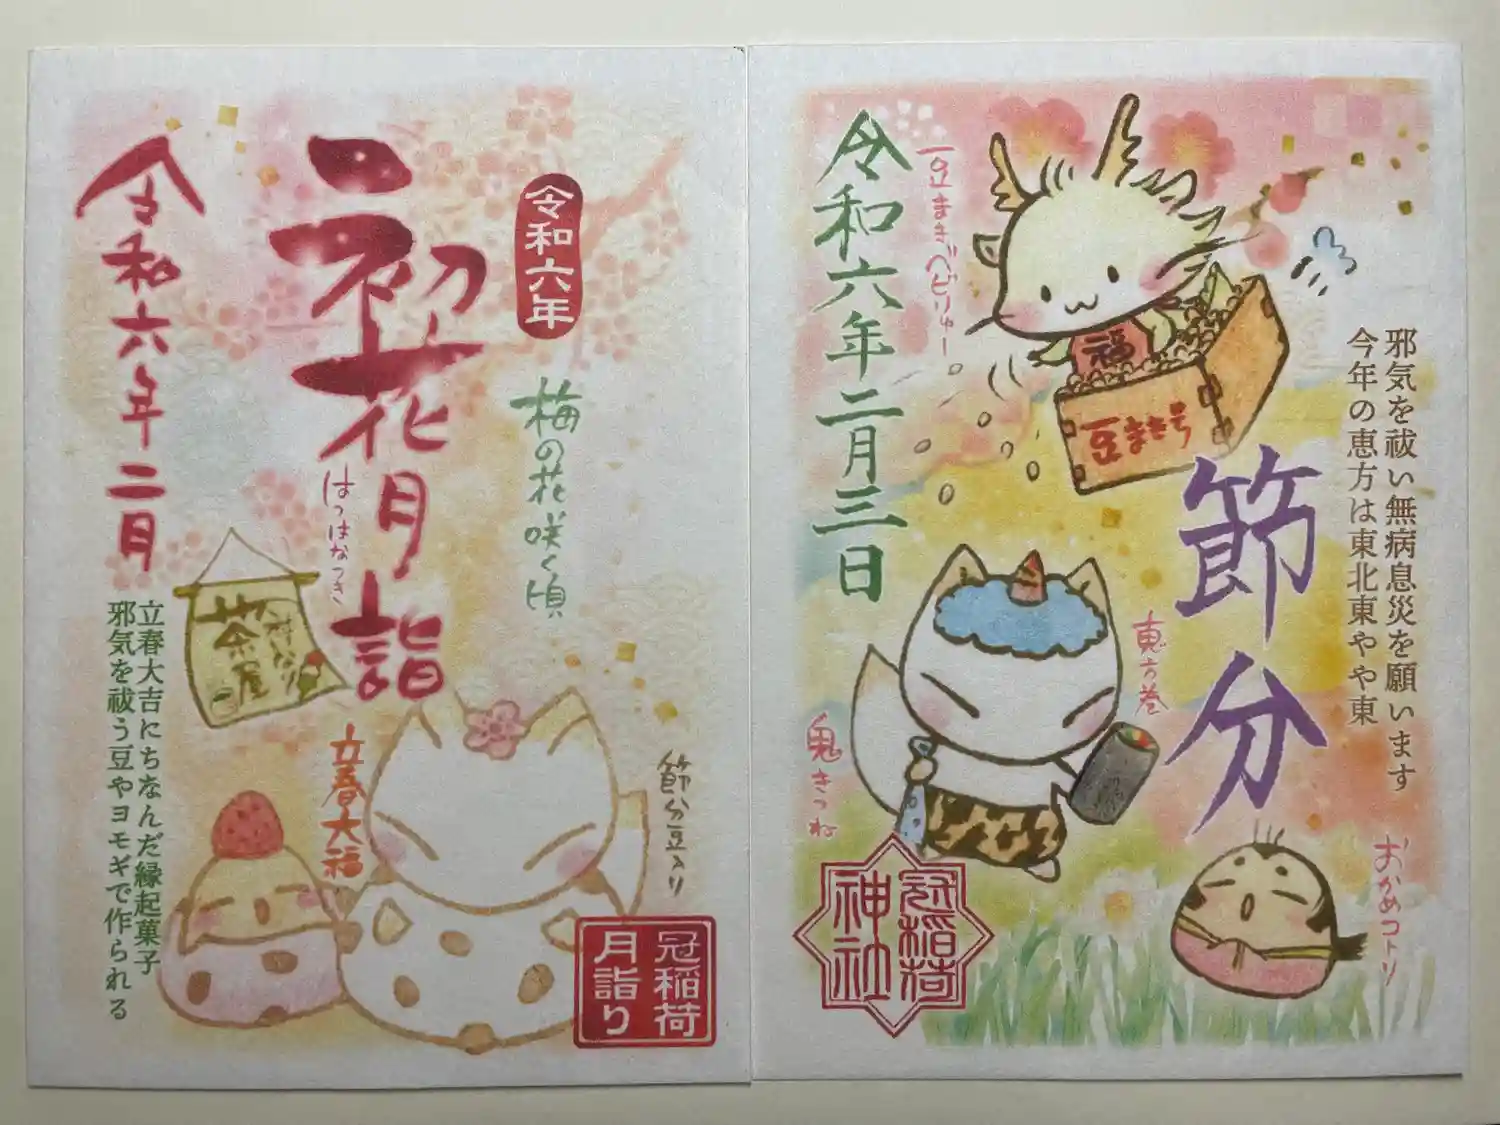 令和六年二月
初花月詣
はつはなつき
令和六年
梅の花咲く頃
茶屋
立春大吉にちなんだ縁起菓子
邪気を祓う豆やヨモギで作られる
立春大福
節分豆入り
冠稲荷
月詣り
令和六年二月三日
豆まきベビりゅー
福
豆まき号
節分
邪気を祓い無病息災を願います
今年の恵方は東北東やや東
恵方巻
鬼きつね
冠稲荷
神社
おかめコトリ